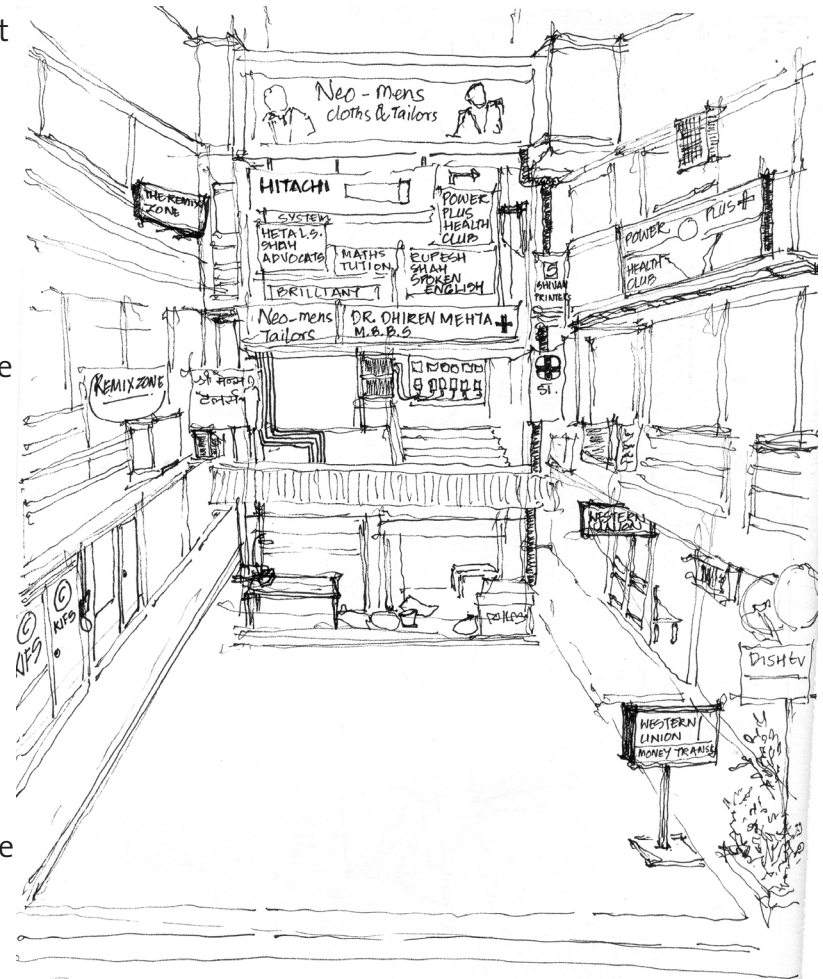 t
Neo-mens
cloths & Tailors
HITACHI
SYSTEM
POWER
PLUS
HEALTH
CLUB
HETAL.S.
SHAH
ADVOCATS
MATHS
TUTION
RUPESH
SHAH
SPOKEN
ENGLISH
BRILLIANT
Neo-mens
Tailors
DR. DHIREN MEHTA
M.B.B.S
THE REMIX
ZONE
POWER PLUS
HEALTH
CLUB
S
SHIVAM
PRINTERS
e
REMIXZONE
ST.
WESTERN
UNION
© ©
KIFS
KIFS
DISH tv
WESTERN
UNION
MONEY TRANS
e